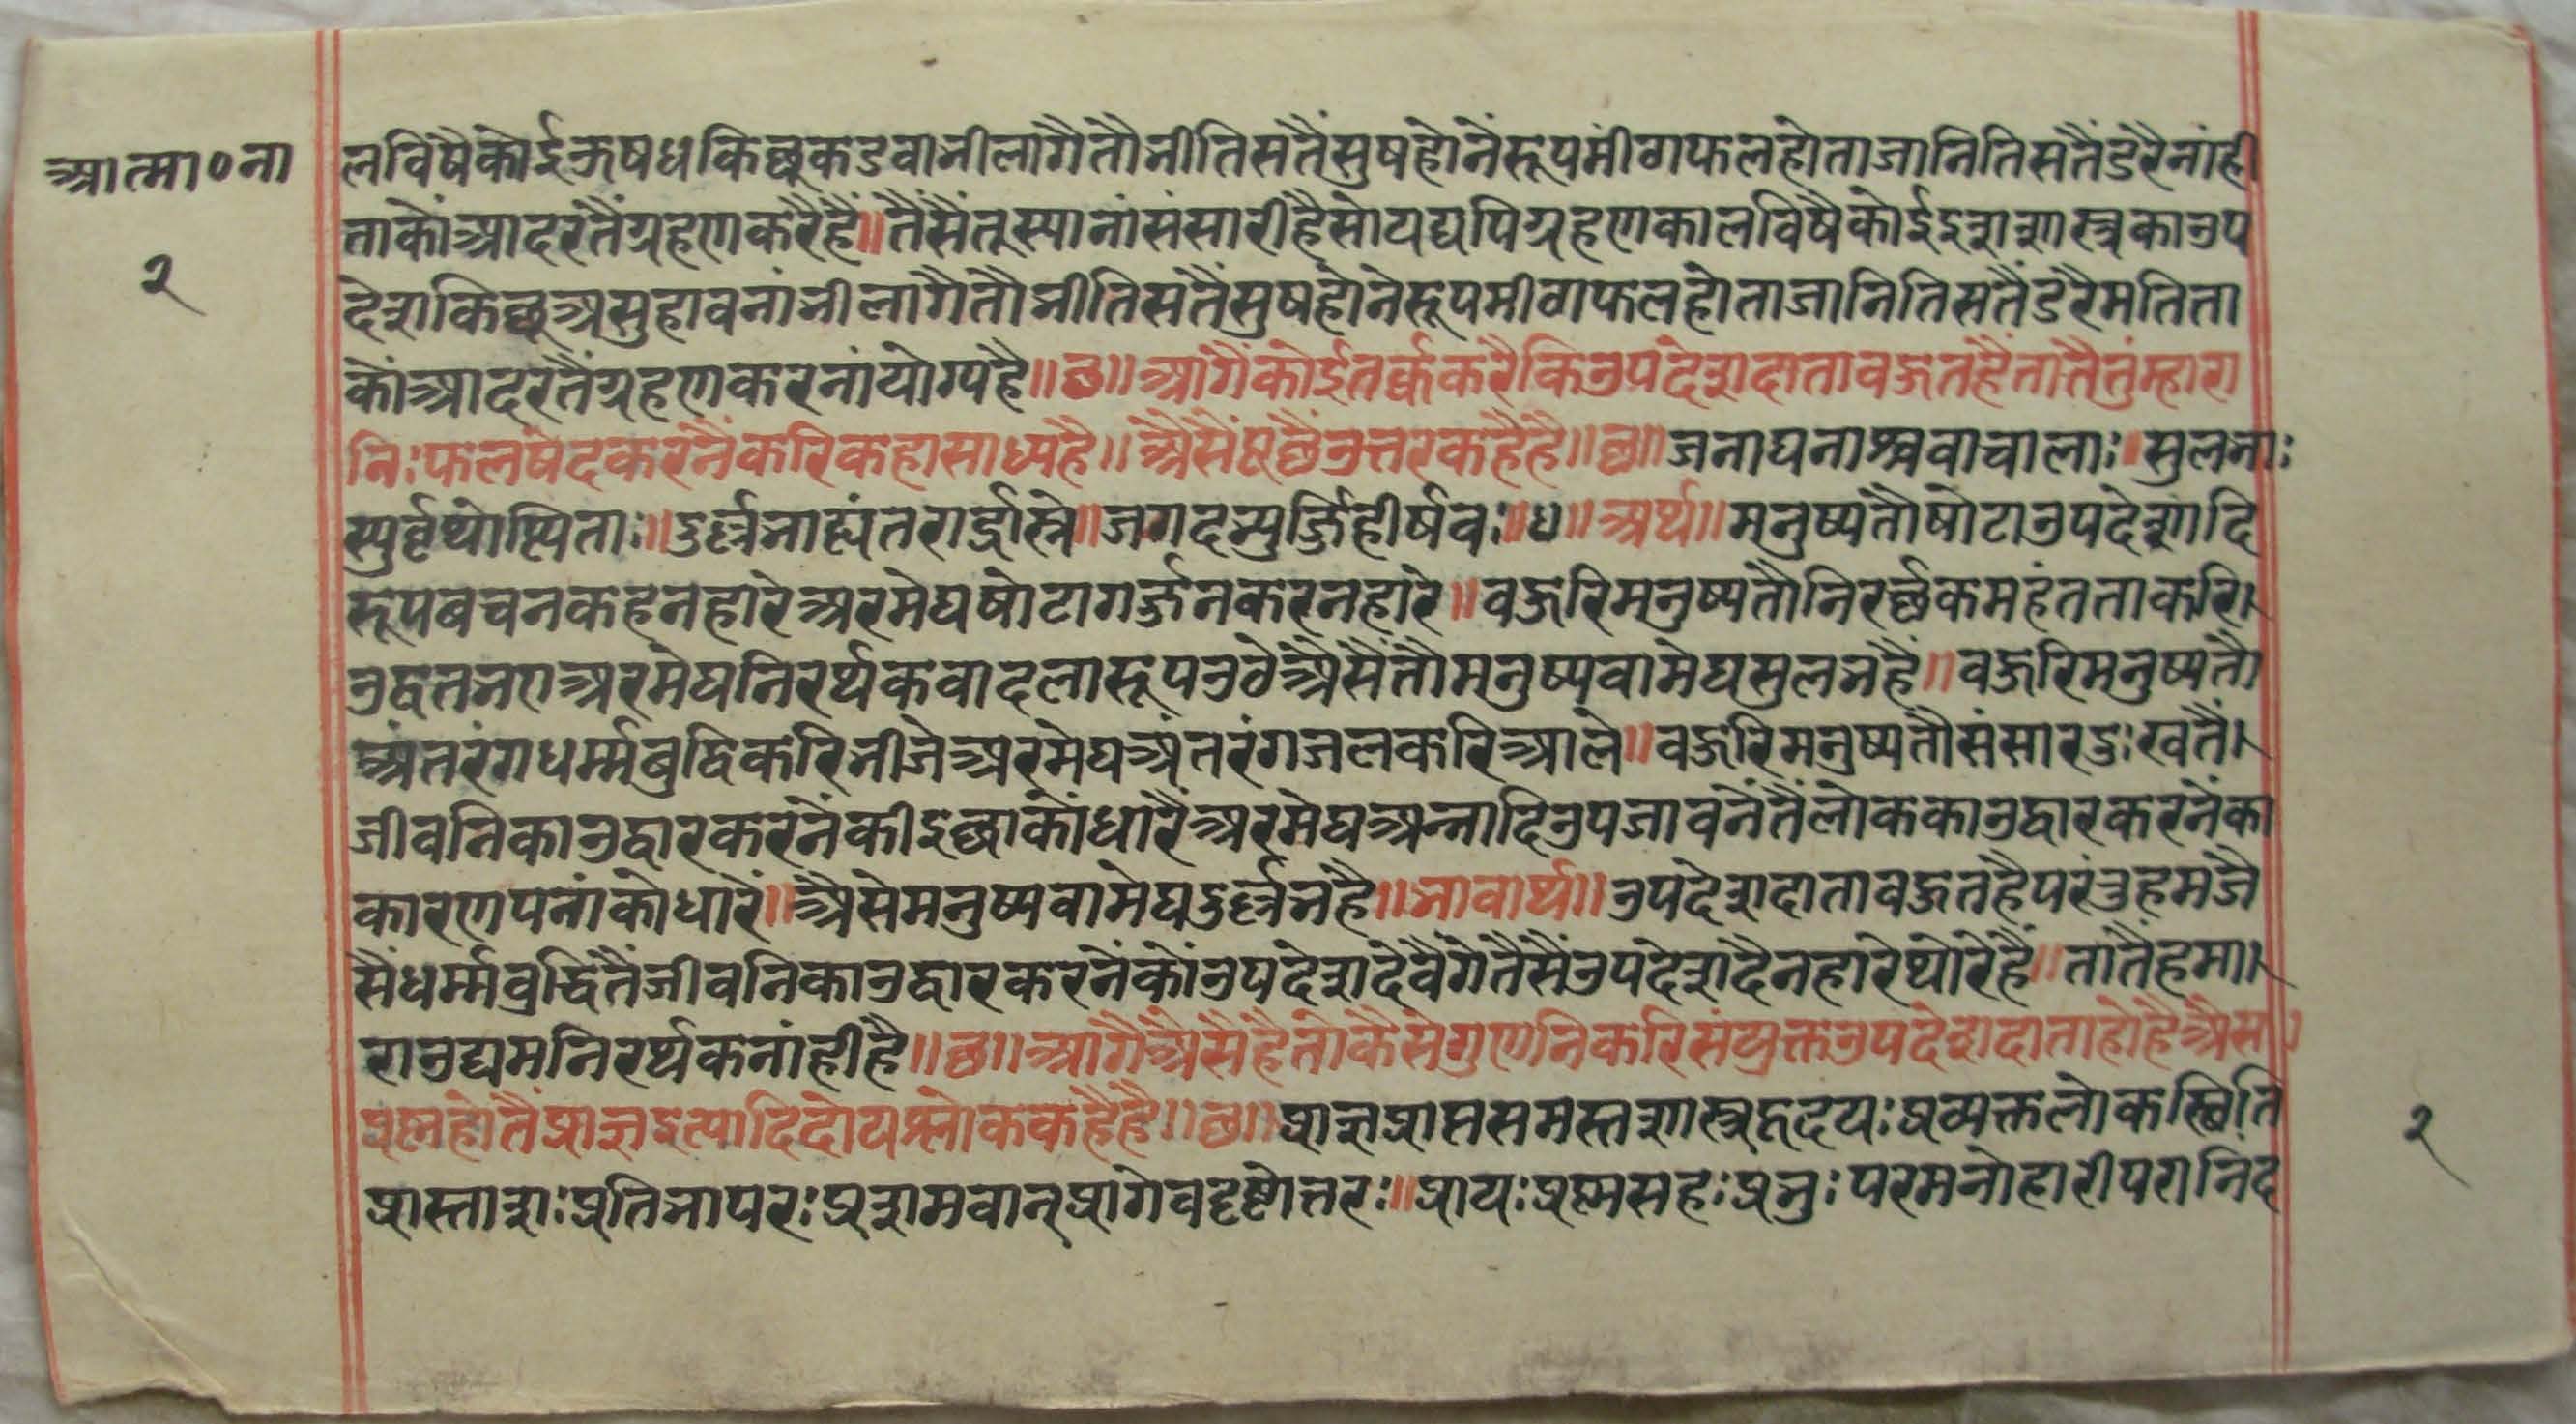 आत्मा० भा
२
लविषैकोईऊषधकिछूकडवाभीलागैतौभीतिसतैंसुषहोनैंरूपमीठाफलहोताजानितिसतैंडरैनांही
ताकौंआदरतैंग्रहणकरैहैं॥तैसैंतूस्यानांसंसारीहैसोयद्यपिग्रहणकालविषैकोईइसशास्त्रकाउप
देशकिछूअसुहावनांभीलागैतौभीतिसतैंसुषहोनेरूपमीठाफलहोताजानितिसतैंडरैमतिता
कौंआदरतैंग्रहणकरनांयोग्यहै॥छ॥आगैंकोईतर्ककरैकिउपदेशदातावऊतहैंतातैतुंम्हारा
निःफलषेदकरनैंकरिकहासाध्यहै॥अैसैंपूछैंउत्तरकहैहै॥छ॥जनाघनाश्चवाचालाः॥सुलभाः
स्युर्वृथोत्थिताः॥दुर्ल्लभाह्यंतरार्द्रास्ते॥जगदभ्युर्ज्जिहीर्षवः॥४॥अर्थ॥मनुष्यतौषोटाउपदेशादि
रूपबचनकहनहारेअरमेघषोटागर्ज्जनकरनहारे॥वऊरिमनुष्यतौनिरर्छकमहंतताकरि
उद्वतभएअरमेघनिरर्थकवादलारूपउठेअैसैंतौमनुष्यवामेघसुलभहैं॥वऊरिमनुष्यतौ
अंतरंगधर्म्मबुद्धिकरिभीजेअरमेघअंतरंगजलकरिआले॥वऊरिमनुष्यतौसंसारदुःखतैं
जीवनिकाउद्धारकरनैंकीइछाकौंधारैंअरमेघअन्नादिउपजावनैंतैंलोककाउद्धारकरनेंका
कारणपनांकोधारैं॥अैसेमनुष्यवामेघदुर्ल्लभहै॥भावार्थ॥उपदेशदातावऊतहैपरंतुहमजै
सैंधर्म्मबुद्धितैंजीवनिकाउद्धारकरनैंकौंउपदेशदेवैगेतैसैंउपदेशदैनहारेथोरेहैं॥तातैंहमा
राउद्यमनिरर्थकनांहीहै॥छ॥आगैंअैसैंहैतौकैसेगुणनिकरिसंयुक्तउपदेशदाताहोहैअैसा
प्रश्नहोतैंप्राज्ञइत्यादिदोयश्लोककहैहै॥छ॥प्राज्ञप्राप्तसमस्तशास्त्रहृदयःप्रव्यक्तलोकस्छिति
प्रास्ताशःप्रतिभापरःप्रशमवान्प्रागेवदृष्टोत्तरः॥प्रायःप्रश्नसहःप्रभुःपरमनोहारीपरानिंद
२